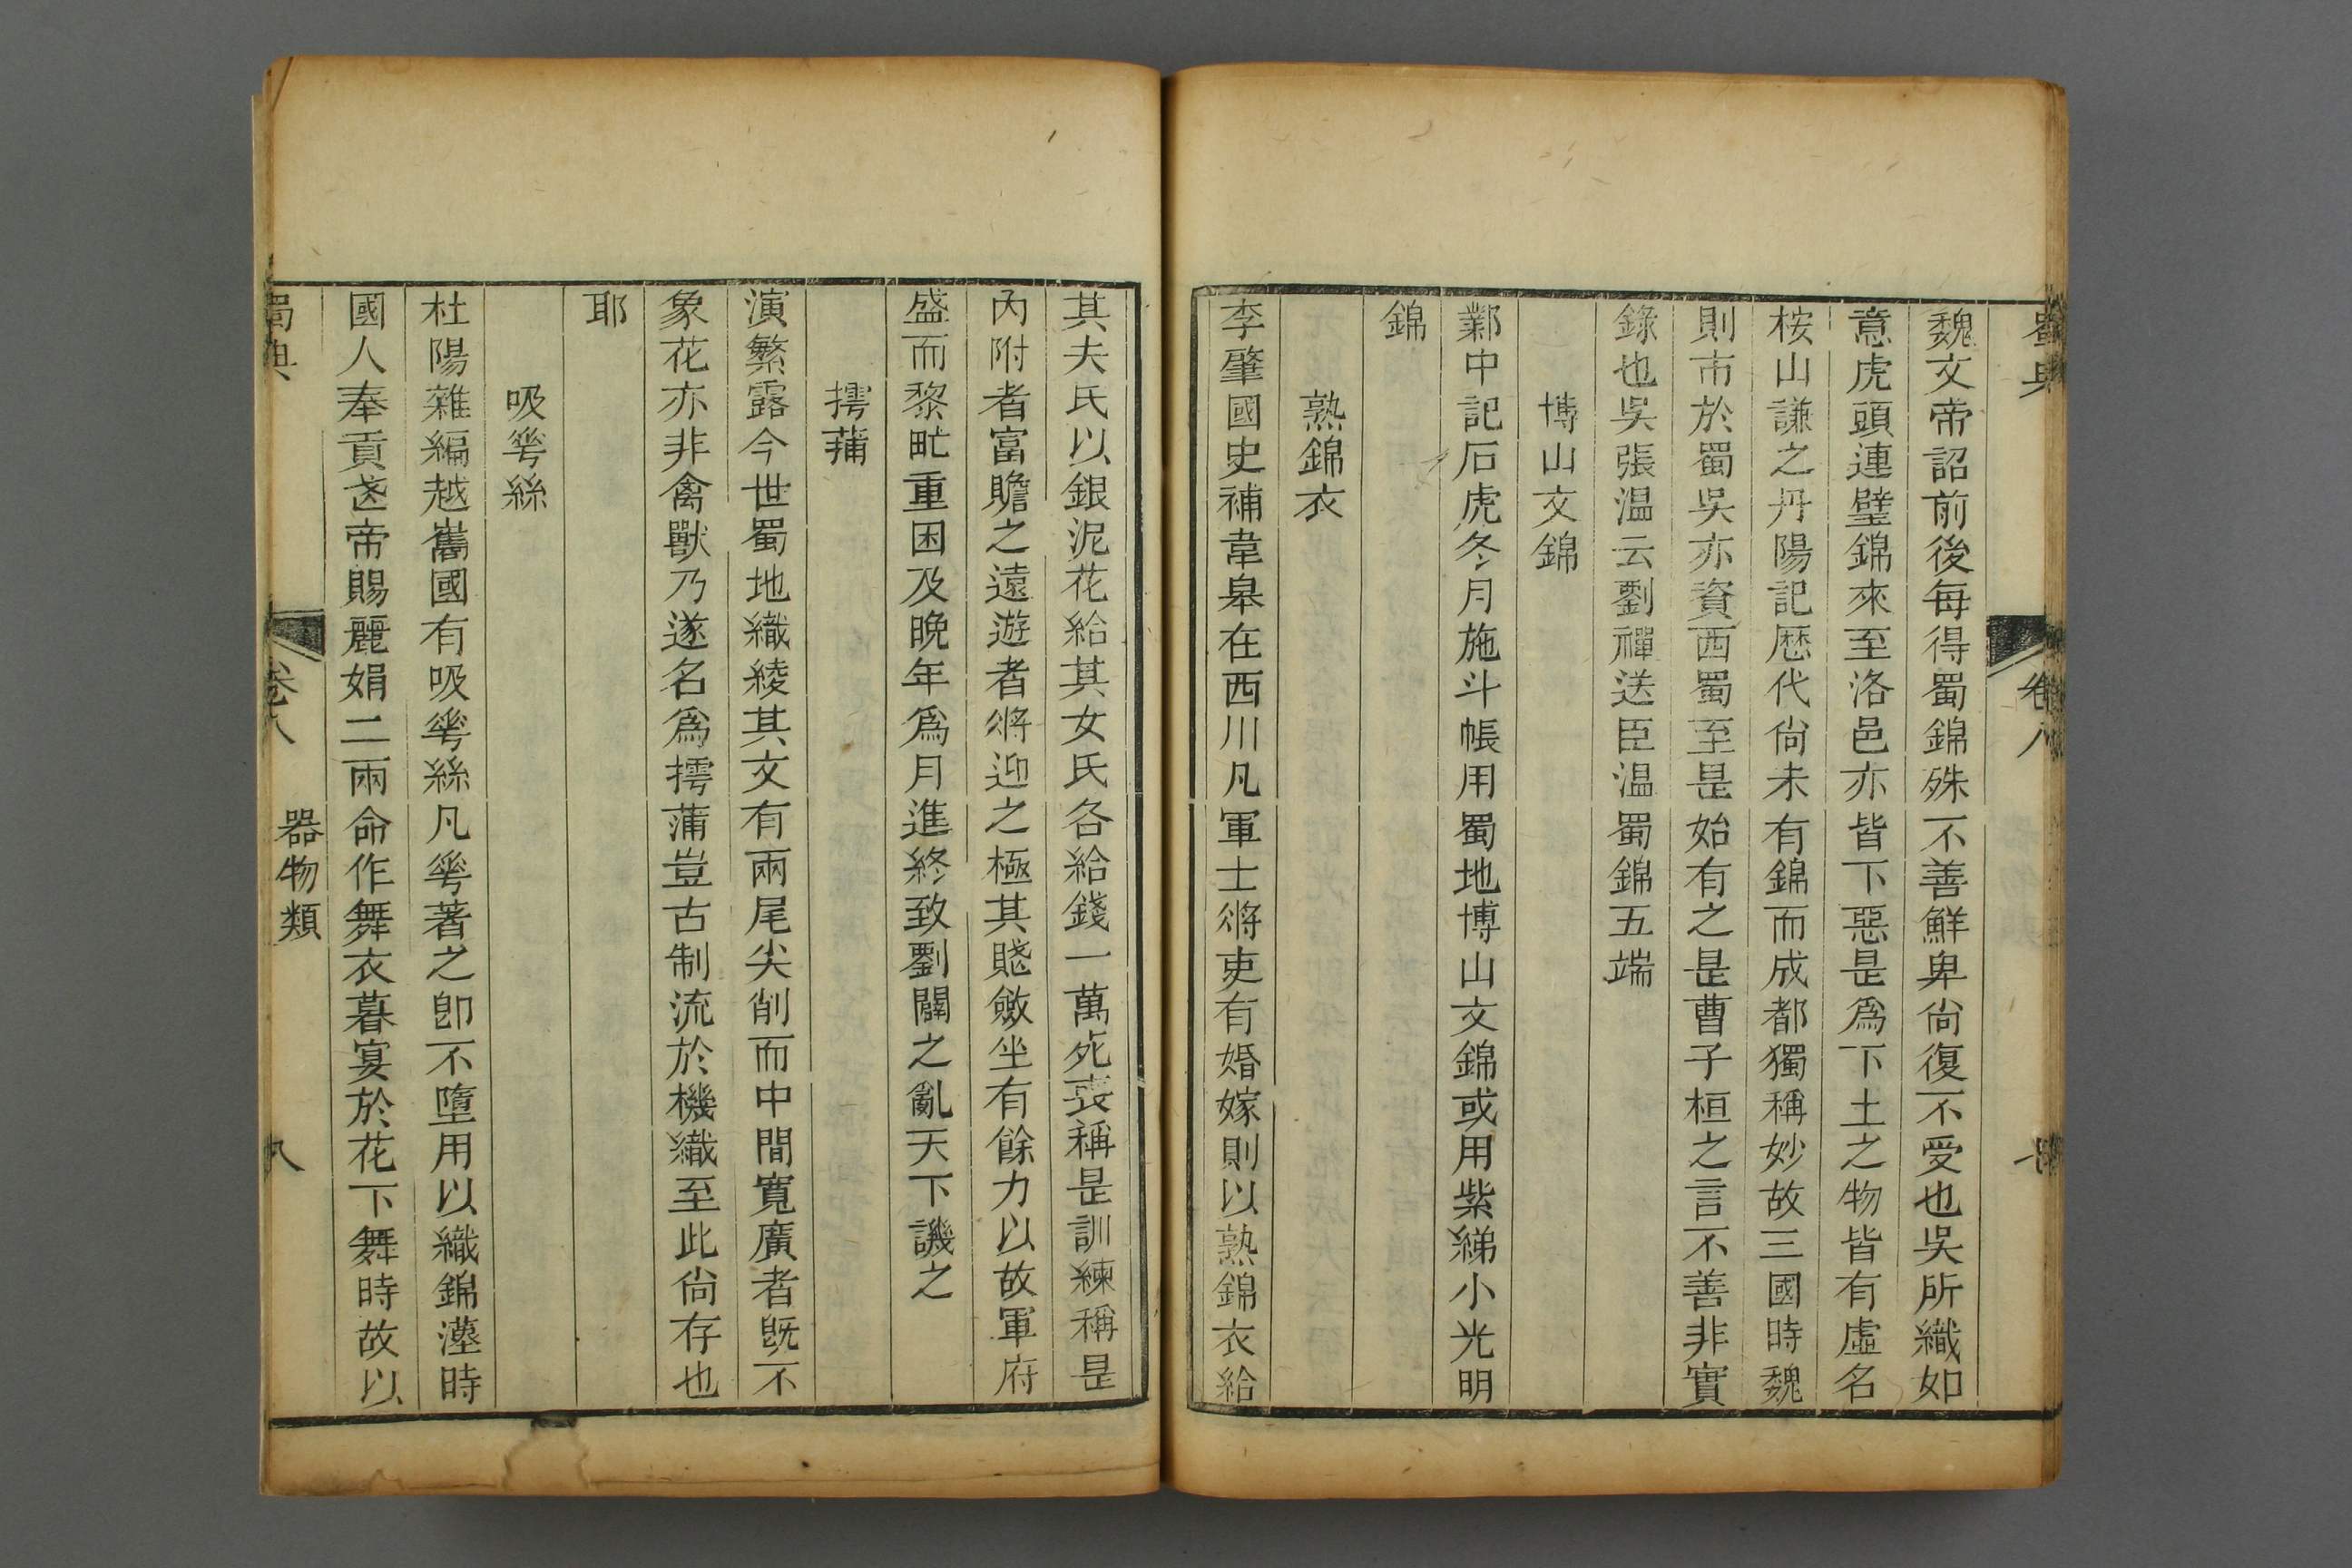 蜀典
卷八
魏文帝詔前後每得蜀錦殊不善鮮卑尚復不受也吳所織如
意虎頭連璧錦來至洛邑亦皆下惡是爲下土之物皆有虛名
桉山謙之丹陽記歷代尚未有錦而成都獨稱妙故三國時魏
則市於蜀吳亦資西蜀至是始有之是曹子桓之言不善非實
錄也吳張温云劉禪送臣温蜀錦五端
博山文錦
鄴中記石虎冬月施斗帳用蜀地博山文錦或用紫綈小光明
錦
熟錦衣
李肇國史補韋皋在西川凡軍士將吏有婚嫁則以熟錦衣給
其夫氏以銀泥花給其女氏各給錢一萬死喪稱是訓練稱是
內附者富贍之遠遊者將迎之極其賤斂坐有餘力以故軍府
盛而黎甿重困及晚年爲月進終致劉闢之亂天下譏之
摴蒱
演繁露今世蜀地織綾其文有兩尾尖削而中間寬廣者旣不
象花亦非禽獸乃遂名爲摴蒲豈古制流於機織至此尚存也
耶
吸華絲
杜陽雜編越巂國有吸華絲凡華著之卽不墮用以織錦漢時
國人奉貢武帝賜麗娟二兩命作舞衣暮宴於花下舞時故以
蜀典
卷八
器物類
八